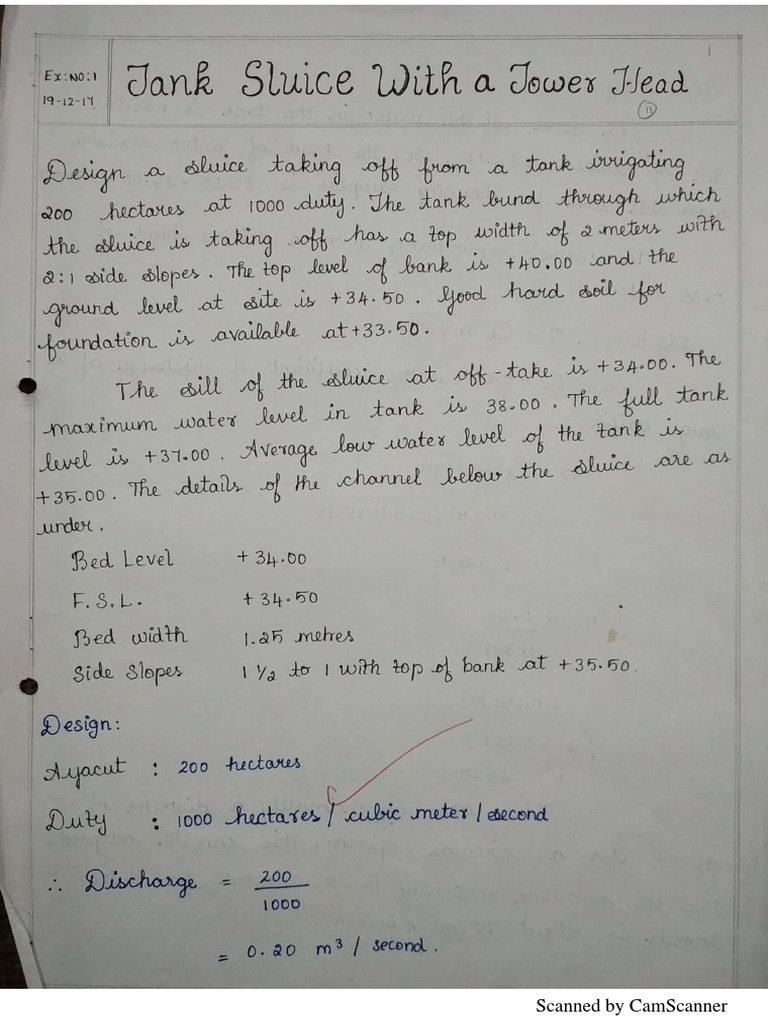 1
Ex:NO:1
19-12-17
Tank Sluice With a Tower Head
11
Design a sluice taking off from a tank irrigating
200 hectares at 1000 duty. The tank bund through which
the sluice is taking off has a top width of 2 meters with
2:1 side slopes. The top level of bank is +40.00 and the
ground level at site is +34.50. Good hard soil for
foundation is available at +33.50.
The sill of the sluice at off-take is +34.00. The
maximum water level in tank is 38.00. The full tank
level is +37.00. Average low water level of the tank is
+35.00. The details of the channel below the sluice are as
under.
Bed Level +34.00
F.S.L. +34.50
Bed width 1.25 metres
Side Slopes 1 1/2 to 1 with top of bank at +35.50.
Design:
Ayacut : 200 hectares
Duty : 1000 hectares / cubic meter / second
∴ Discharge = 200
1000
= 0.20 m³ / second.
Scanned by CamScanner